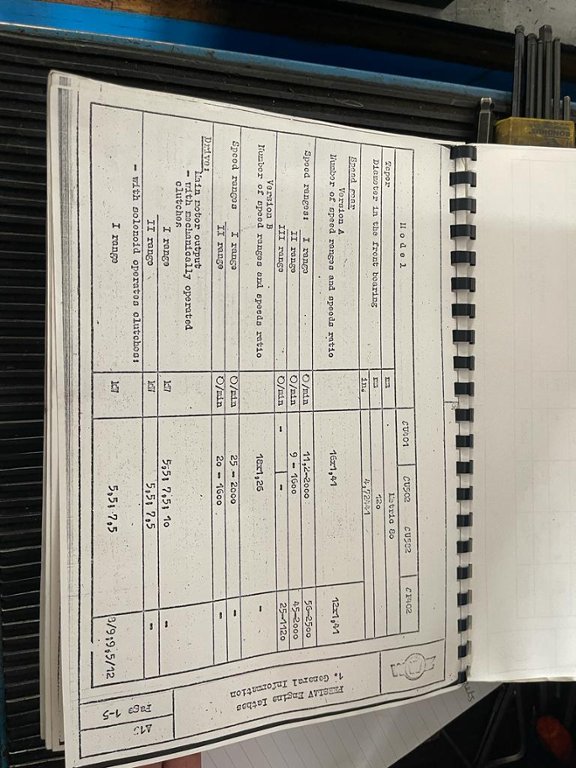 PRESLAV Engine Lathes
1. General Information
Page 1-5
Model CU401 CU502 CU582 CP402
Taper mm Metric 80
Diameter in the front bearing mm 120
in. 4,72441
Speed gear
Version A
Number of speed ranges and speeds ratio 16x1,41 12x1,41
Speed ranges: I range O/min 11,2-2000 56-2500
II range O/min 9 - 1600 45-2000
III range O/min - - 25-1120
Version B
Number of speed ranges and speeds ratio 18x1,26 -
Speed ranges I range O/min 25 - 2000 -
II range O/min 20 - 1600 -
Drive:
Main motor output
- with mechanically operated
clutches
I range kW 5,5; 7,5; 10 -
II range kW 5,5; 7,5 -
- with solenoid operates clutches:
I range kW 5,5; 7,5 /9;9,5/12
BONDHUS